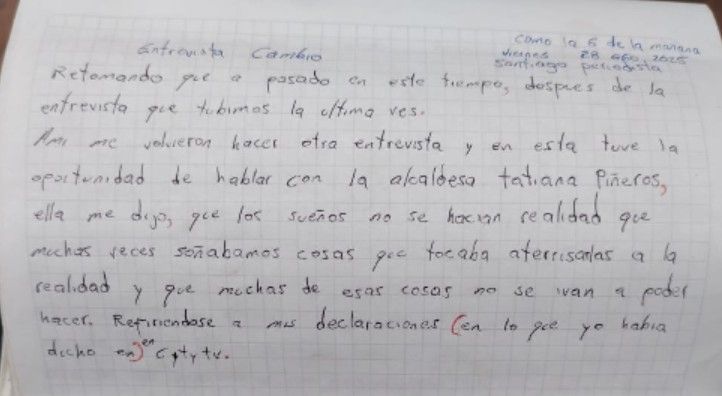 como la 5 de la mañana
Entrevista Cambio
viernes 28 ago, 2025
santiago periodista
Retomando que a pasado en este tiempo, despues de la
entrevista que tubimos la ultima ves.
Ami me volvieron hacer otra entrevista y en esta tuve la
oportunidad de hablar con la alcaldesa tatiana Piñeros,
ella me dijo, que los sueños no se hacian realidad que
muchas veces soñabamos cosas que tocaba aterrisarlas a la
realidad y que muchas de esas cosas no se ivan a poder
hacer. Refiriendose a mis declaraciones (en lo que yo habia
dicho en) en Cytytv.